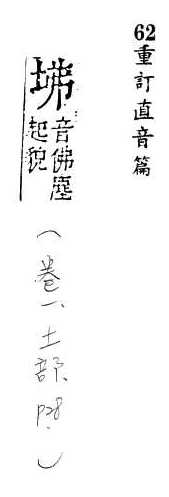 62重訂直音篇
坲音佛塵
起貌
(卷一、土部、P28.)